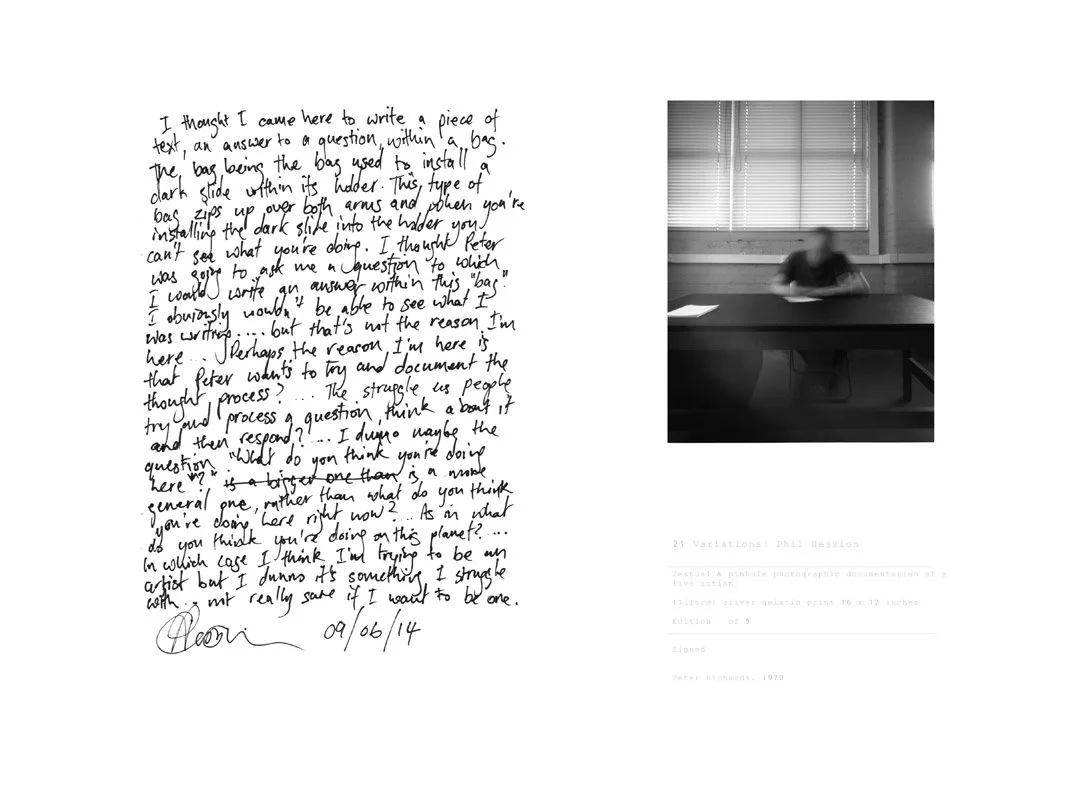 I thought I came here to write a piece of
text, an answer to a question, within a bag.
The bag being the bag used to install a
dark slide within its holder. This type of
bag zips up over both arms and when you're
installing the dark slide into the holder you
can't see what you're doing. I thought Peter
was going to ask me a question to which
I would write an answer within this "bag."
I obviously wouldn't be able to see what I
was writing.... but that's not the reason I'm
here... Perhaps the reason I'm here is
that Peter wants to try and document the
thought process? ... The struggle us people
try and process a question, think about it
and then respond? ... I dunno maybe the
question "What do you think you're doing
here"? is a bigger one than is a more
general one, rather than what do you think
you're doing here right now? ... As in what
do you think you're doing on this planet? ....
In which case I think I'm trying to be an
artist but I dunno it's something I struggle
with... not really sure if I want to be one.
09/06/14
21 Variations: Phil Hession
Textual & pinhole photographic documentation of a
live action
(lifted) silver gelatin print 16 x 12 inches
Edition of 5
Signed
Peter Richards, 1970